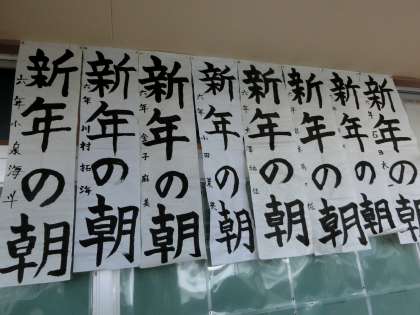 新年の朝
六年 小泉海斗
新年の朝
六年 川村拓海
新年の朝
六年 金子麻美
新年の朝
六年
新年の朝
六年
新年の朝
新年の朝
新年の朝